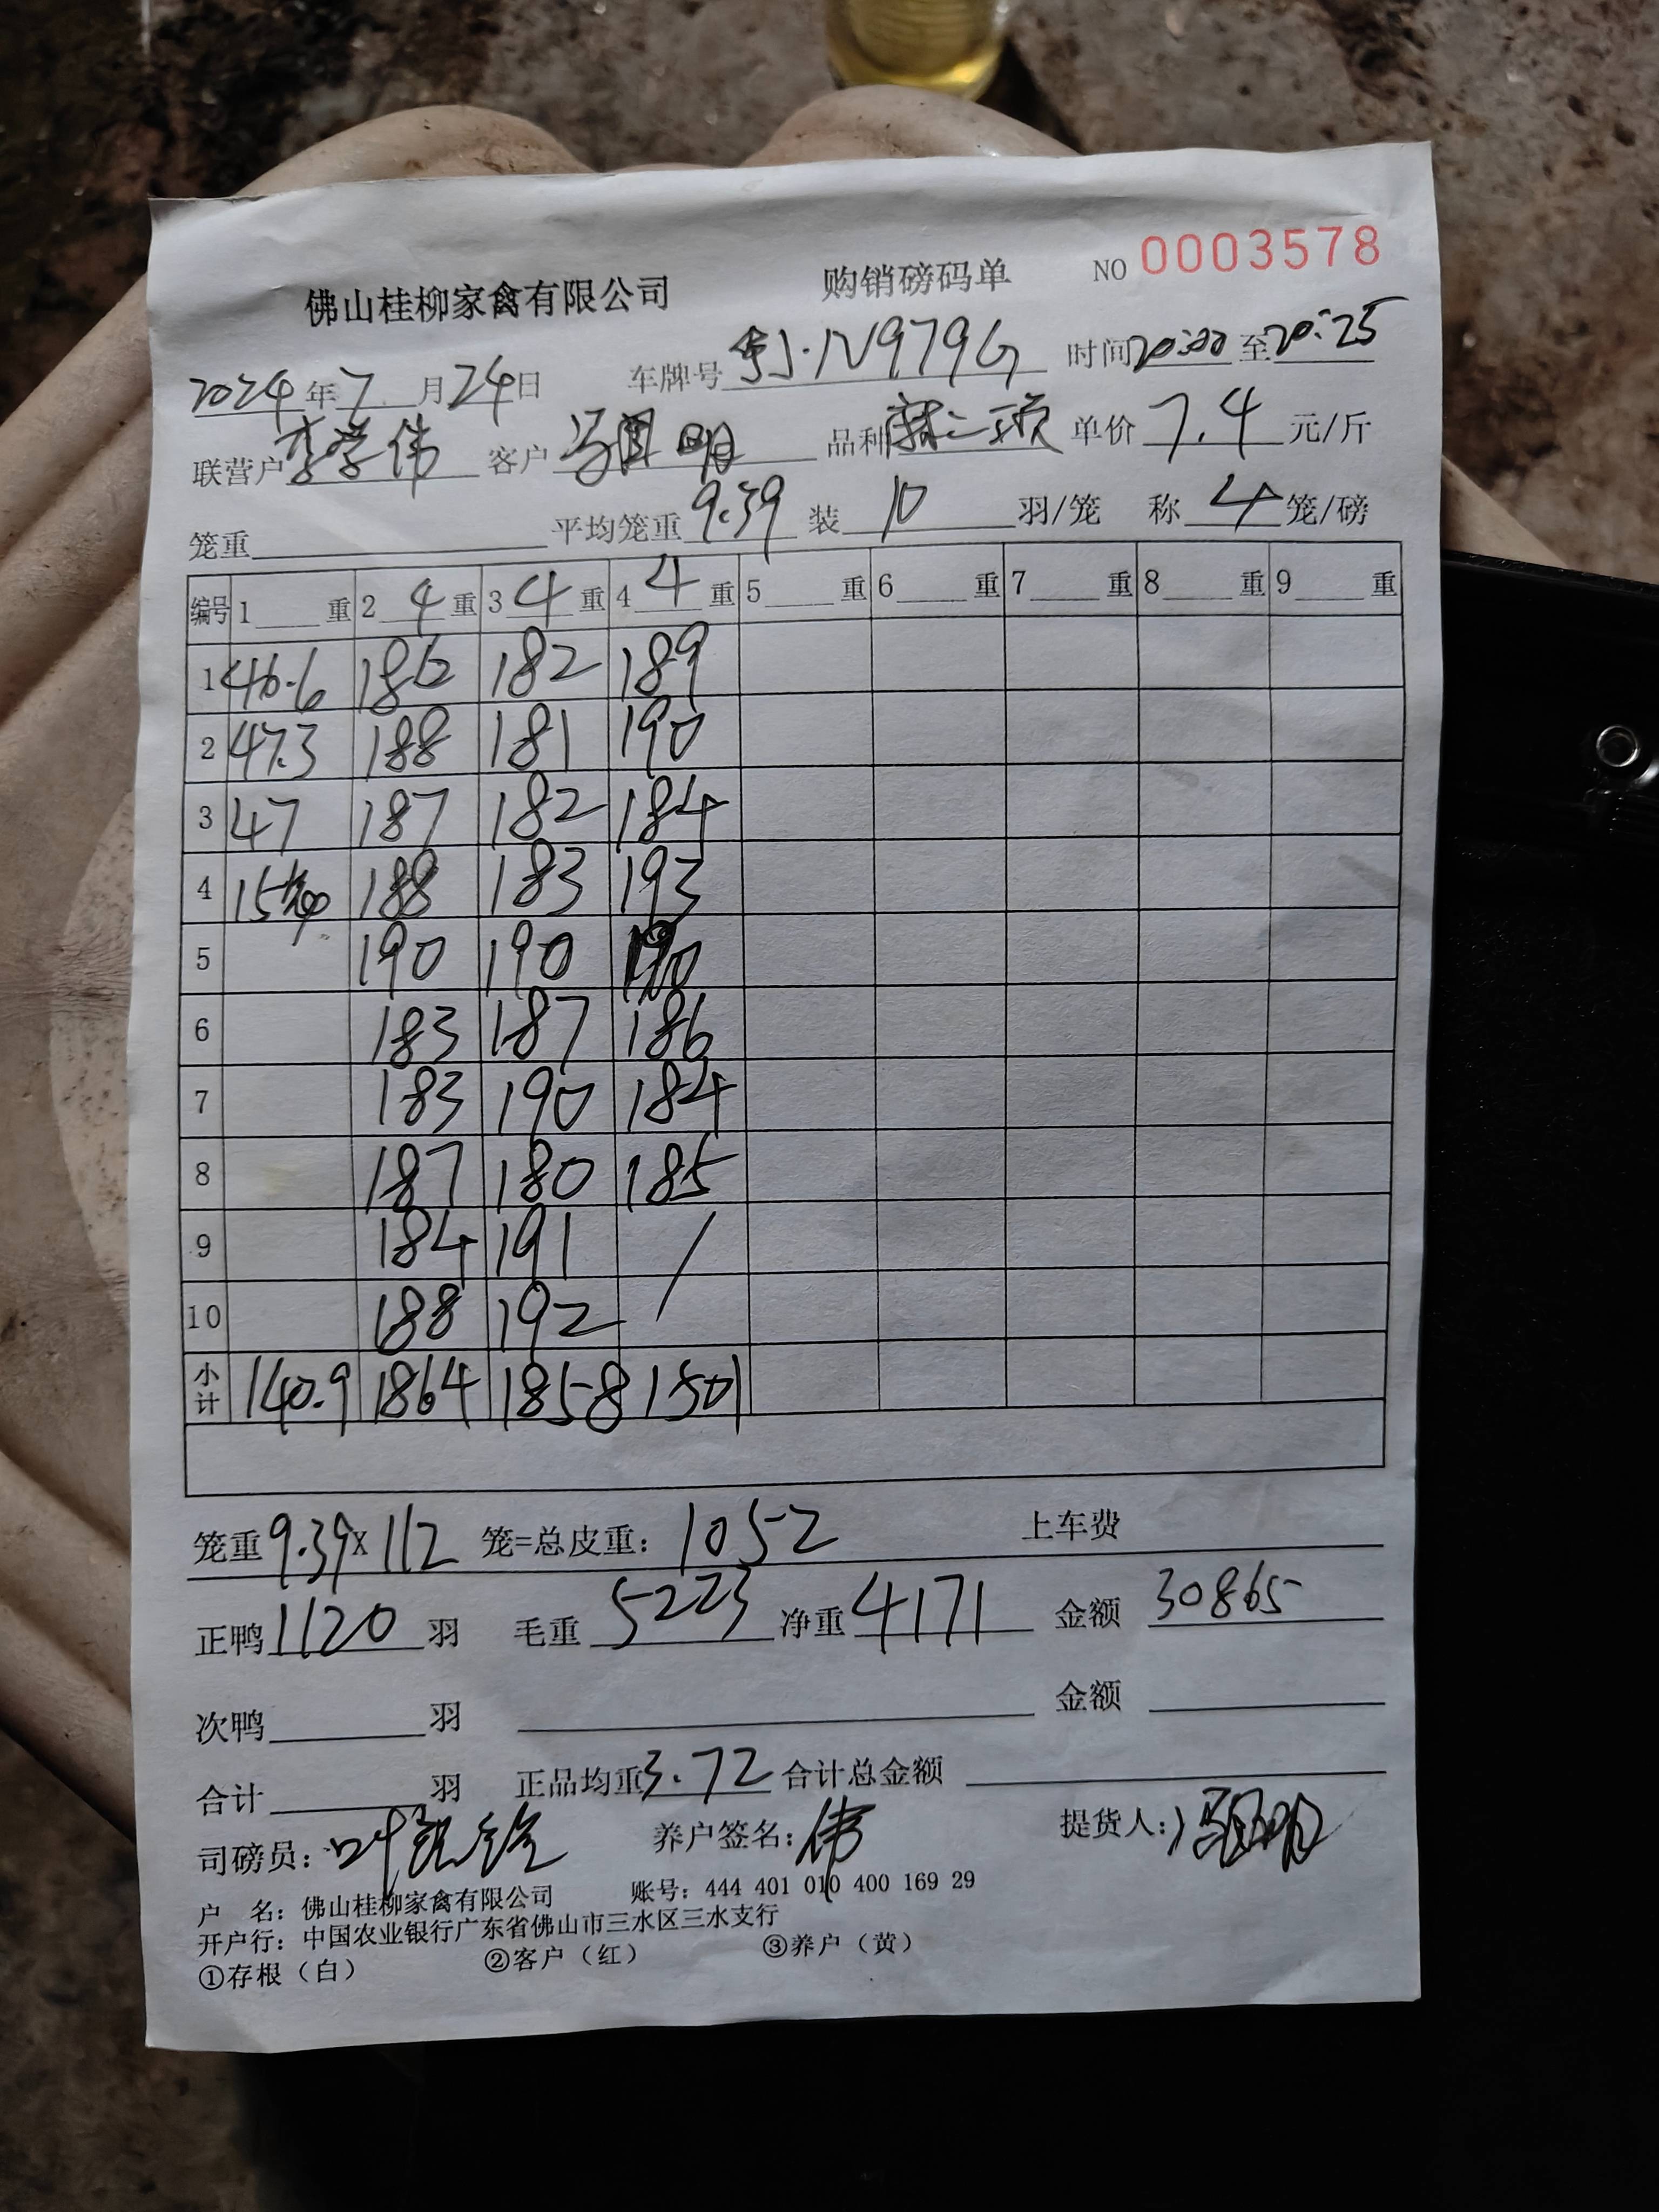 佛山桂柳家禽有限公司 购销磅码单 NO 0003578
2024年7月24日 车牌号 粤J·N979G 时间20:00至20:25
联营户 李学伟 客户 冯国明 品种 单价 7.4 元/斤
笼重 平均笼重 9.39 装 10 羽/笼 称 4 笼/磅
编号 1 重 2 4 重 3 4 重 4 4 重 5 重 6 重 7 重 8 重 9 重
1 46.6 186 182 189
2 47.3 188 181 190
3 47 187 182 184
4 15 188 183 193
5 190 190 190
6 183 187 186
7 183 190 184
8 187 180 185
9 184 191 /
10 188 192
小计 140.9 1864 1858 1501
笼重 9.39 X 112 笼=总皮重: 1052 上车费
正鸭 1120 羽 毛重 5223 净重 4171 金额 30865
次鸭 羽 金额
合计 羽 正品均重 3.72 合计总金额
司磅员: 养户签名: 伟 提货人: 冯国明
户 名: 佛山桂柳家禽有限公司 账号: 444 401 010 400 169 29
开户行: 中国农业银行广东省佛山市三水区三水支行
①存根（白） ②客户（红） ③养户（黄）